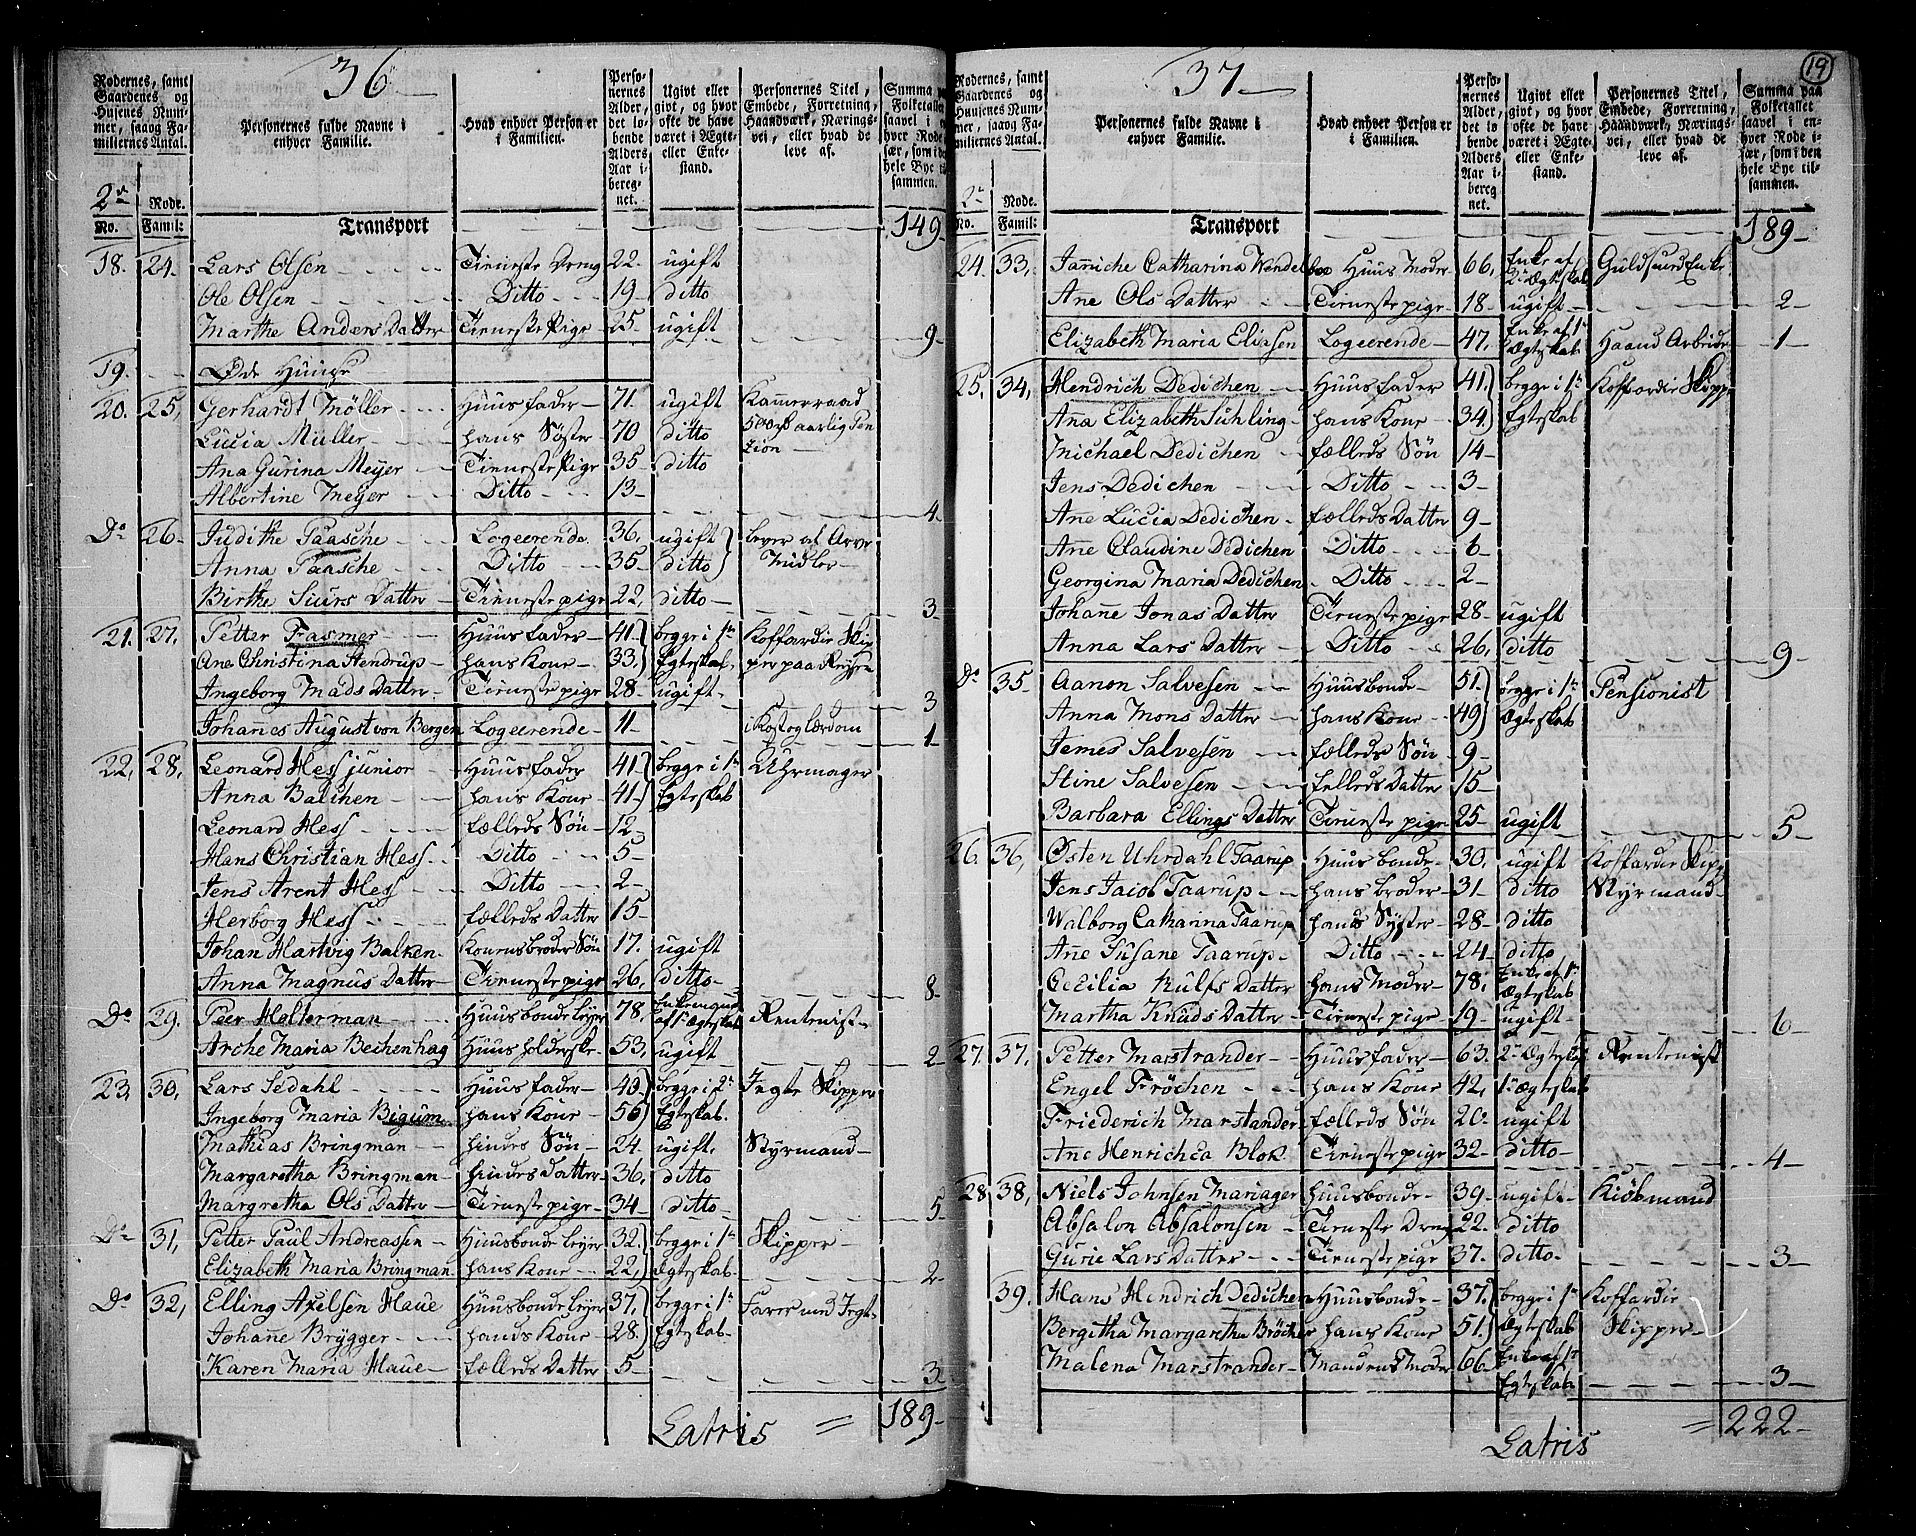 36
Rodernes, samt Gaardenes og Husenes Nummer, saavog Familiernes Antal.
Personernes fulde Navne i enhver Familie.
Hvad enhver Person er i Familien.
Personernes Alder, det løbende Alders Aar iberegnet.
Ugivt eller givt, og hvor ofte de have været i Ægte- eller Enkestand.
Personernes Titel, Embede, Forretning, Haandværk, Næringsvei, eller hvad de leve af.
2de Rode.
No. Famil:
Transport 149
18. 24. Lars Olsen Tieneste Dreng 22. ugift
Ole Olsen Ditto 19 ditto
Marthe Anders Datter Tieneste Pige 25. ugift 9
19. Øde Huuse
20. 25, Gerhardt Möller Huusfader 71. ugift Kammerraad
Lucia Müller hans Søster 70 ditto aarlig Pen
Ana Gurina Meyer Tieneste Pige 35 ditto sion
Albertine Meyer Ditto 13 4.
Do 26 Judithe Paasche Logeerende 36, ugift lever af Arve
Anna Paasche Ditto 35 ditto Midler
Birthe Siurs Datter Tienestepige 22, ditto 3
21. 27, Petter Fasmer Huusfader 41. begge i 1te Koffardie Skip
Ane Christina Hendrup hans Kone 33, Egteskab per paa Reysen
Ingeborg Mads Datter Tienestepige 28 ugift 3
Johannes August von Bergen Logeerende 11 i Kost og lærdom 1
22, 28, Leonard Hess junior Huusfader 41 begge i 1te Uhrmager
Anna Balchen hans Kone 41 Egteskab
Leonard Hess fælleds Søn 12
Hans Christian Hess Ditto 5
Jens Arent Hess Ditto 2
Herborg Hess fælleds Datter 15
Johan Hartvig Balken Konensbroder Søn 17. ugift
Anna Magnus Datter Tienestepige 26, ditto 8
Do 29. Peer Holterman Huusbonde leyer 78, Enkemand af 1te Egteskab Rentenist
Arche Maria Bechenhag Huusholderske 53, ugift 2
23, 30, Lars Sedahl Huusfader 49 begge i 2de Jegte Skipper
Ingeborg Maria Bigum hans Kone 56 Egteskab.
Mathias Bringman hindes Søn 24 ugift. Styrmand
Margaretha Bringman hindes Datter 36, ditto
Margretha Ols Datter Tienestepige 34 ditto 5
Do 31, Petter Paul Andreassen Huusbonde leyer 32. begge i 1te Skipper
Elizabeth Maria Bringman hans Kone 22, Ægteskab 2
Do 32, Elling Axelsen Haue Huusbonde leyer 37, begge i 1te Farer med Jegt
Johanne Brygger hands Kone 28. Egteskab
Karen Maria Haue fælleds Datter 5 3
Latris = 189
19
37
Rodernes, samt Gaardenes og Husenes Nummer, saavog Familiernes Antal.
Personernes fulde Navne i enhver Familie.
Hvad enhver Person er i Familien.
Personernes Alder, det løbende Alders Aar iberegnet.
Ugivt eller givt, og hvor ofte de have været i Ægte- eller Enkestand.
Personernes Titel, Embede, Forretning, Haandværk, Næringsvei, eller hvad de leve af.
Summa paa Folketallet saavel i enhver Rode især, som i den hele Bye tilsammen.
2de Rode.
No. Famil:
Transport 189
24. 33, Janniche Catharina Huus Moder 66, Enke af 2de Ægteskab Guldsmed Enke
Ane Ols Datter Tienestepige 18 ugift 2
Elizabeth Maria Eliasen Logeerende 47, Enke af 1te Ægteskab Haand Arbeide 1
25, 34, Hendrich Dedichen Huusfader 41. begge i 1te Koffardie Skipper
Ana Elizabeth Suhling hans Kone 34 Egteskab
Michael Dedichen fælleds Søn 14
Jens Dedichen Ditto 3
Ane Lucia Dedichen fælleds Datter 9
Ane Claudine Dedichen Ditto 6
Georgina Maria Dedichen Ditto 2
Johanne Jonas Datter Tienestepige 28 ugift
Anna Lars Datter Ditto 26, ditto 9
Do 35 Aanon Salvesen Huusbonde 51. begge i 1te Pensionist
Anna Mons Datter hans Kone 49 Ægteskab
James Salvesen fælleds Søn 9
Stine Salvesen felleds Datter 15
Barbara Ellings Datter Tieneste pige 25 ugift 5
26. 36, Østen Uhrdahl Taarup Huusbonde 30. ugift Koffardie Skipp
Jens Jacob Taarup hans broder 31 ditto Styrmand
Walborg Catharina Taarup hands Syster 28 ditto
Ane Susane Taarup Ditto 24 ditto
Cecilia Rulfs Datter hans Moder 78, Enke af 1te Ægteskab
Martha Knuds Datter Tienestepige 19 ugift 6
27. 37, Petter Marstrander Huusfader 63. 2de Ægteskab Rentenist
Engel Fröchen hans Kone 42, 1te Ægteskab
Friederich Marstander fælleds Søn 20 ugift
Ane Henrichea Blok Tienestepige 32 ditto 4
28, 38, Niels Johnsen Mariager Huusbonde 39 ugift Kiöbmand
Absalon Absalonsen Tieneste Dreng 22. ditto
Gurie Lars Datter Tienestepige 37. ditto 3
39. Hans Hendrich Dedichen Huusbonde 37. begge i 1te Koffardie
Bergitha Margaretha Bröcher hans Kone 51. Ægteskab Skipper
Malena Marstrander Mandens Moder 66 Enke af 1te Egteskab 3
Latris = 222